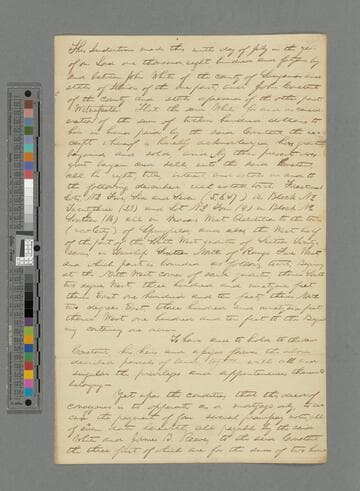 This Indenture made this ninth day of July in the year
of our Lord one thousand eight hundred and fifty by
and between John White of the county of Sangamon and
state of Illinois of the one part, and John Constant
of the County and state aforesaid of the other part
Witnesseth That the said White for and in consid-
eration of the sum of hundred dollars to
him in hand paid by the said Constant the re-
ceipt whereof is hereby acknowledged has granted
bargained and sold and by these presents does
grant bargain and sell unto the said Constant
all his right, title, interest and estate in and to
the following described real estate towit: Fractional
Lots, No Five, Six and Seven (5. 6 & 7) in Block No
(13) and Lot No Eight (8) in Block No
Sixteen (16) all in Addition to the town
(now city) of Springfield and also the West half
of the part of the South West quarter of Section Twenty
Seven, in Township Sixteen North of Range Five West
and which part is bounded as follows, towit, Beginning
at the North West corner of said quarter, thence South
two degrees West three hundred and ninety six feet
thence East one hundred and ten feet thence North
two degrees East three hundred and ninety six feet
thence West one hundred and ten feet to the Begin
ing containing one acre.
To have and to hold to the said
Constant his heirs and assigns forever the above
described parcels of land together with all and
singular the privileges and appurtenances thereunto
belonging.
Yet upon the condition that this deed of
conveyance is to operate as a mortgage only to se-
cure the payment of four several promissory notes, all
of even date herewith, all payable by the said
White and James B. to the said Constant
the three first of which are for the sum of two hund